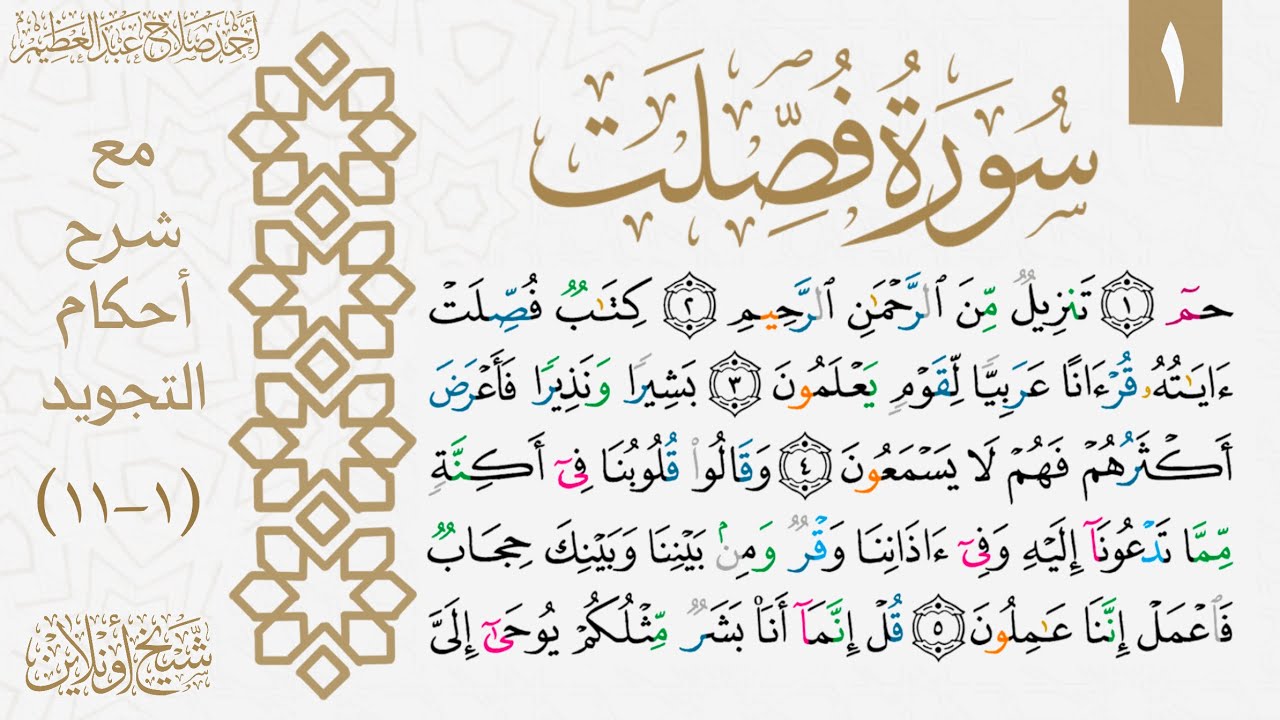 ١
سُورَةُ فُصِّلَتْ
أحمد صلاح عبد العظيم
مع
شرح
أحكام
التجويد
(١-١١)
شيخ أونلاين
حمٓ ١ تَنزِيلٌ مِّنَ ٱلرَّحْمَٰنِ ٱلرَّحِيمِ ٢ كِتَٰبٌ فُصِّلَتْ
ءَايَٰتُهُۥ قُرْءَانًا عَرَبِيًّا لِّقَوْمٍ يَعْلَمُونَ ٣ بَشِيرًا وَنَذِيرًا فَأَعْرَضَ
أَكْثَرُهُمْ فَهُمْ لَا يَسْمَعُونَ ٤ وَقَالُوا۟ قُلُوبُنَا فِىٓ أَكِنَّةٍ
مِّمَّا تَدْعُونَآ إِلَيْهِ وَفِىٓ ءَاذَانِنَا وَقْرٌ وَمِنۢ بَيْنِنَا وَبَيْنِكَ حِجَابٌ
فَٱعْمَلْ إِنَّنَا عَٰمِلُونَ ٥ قُلْ إِنَّمَآ أَنَا۠ بَشَرٌ مِّثْلُكُمْ يُوحَىٰٓ إِلَىَّ